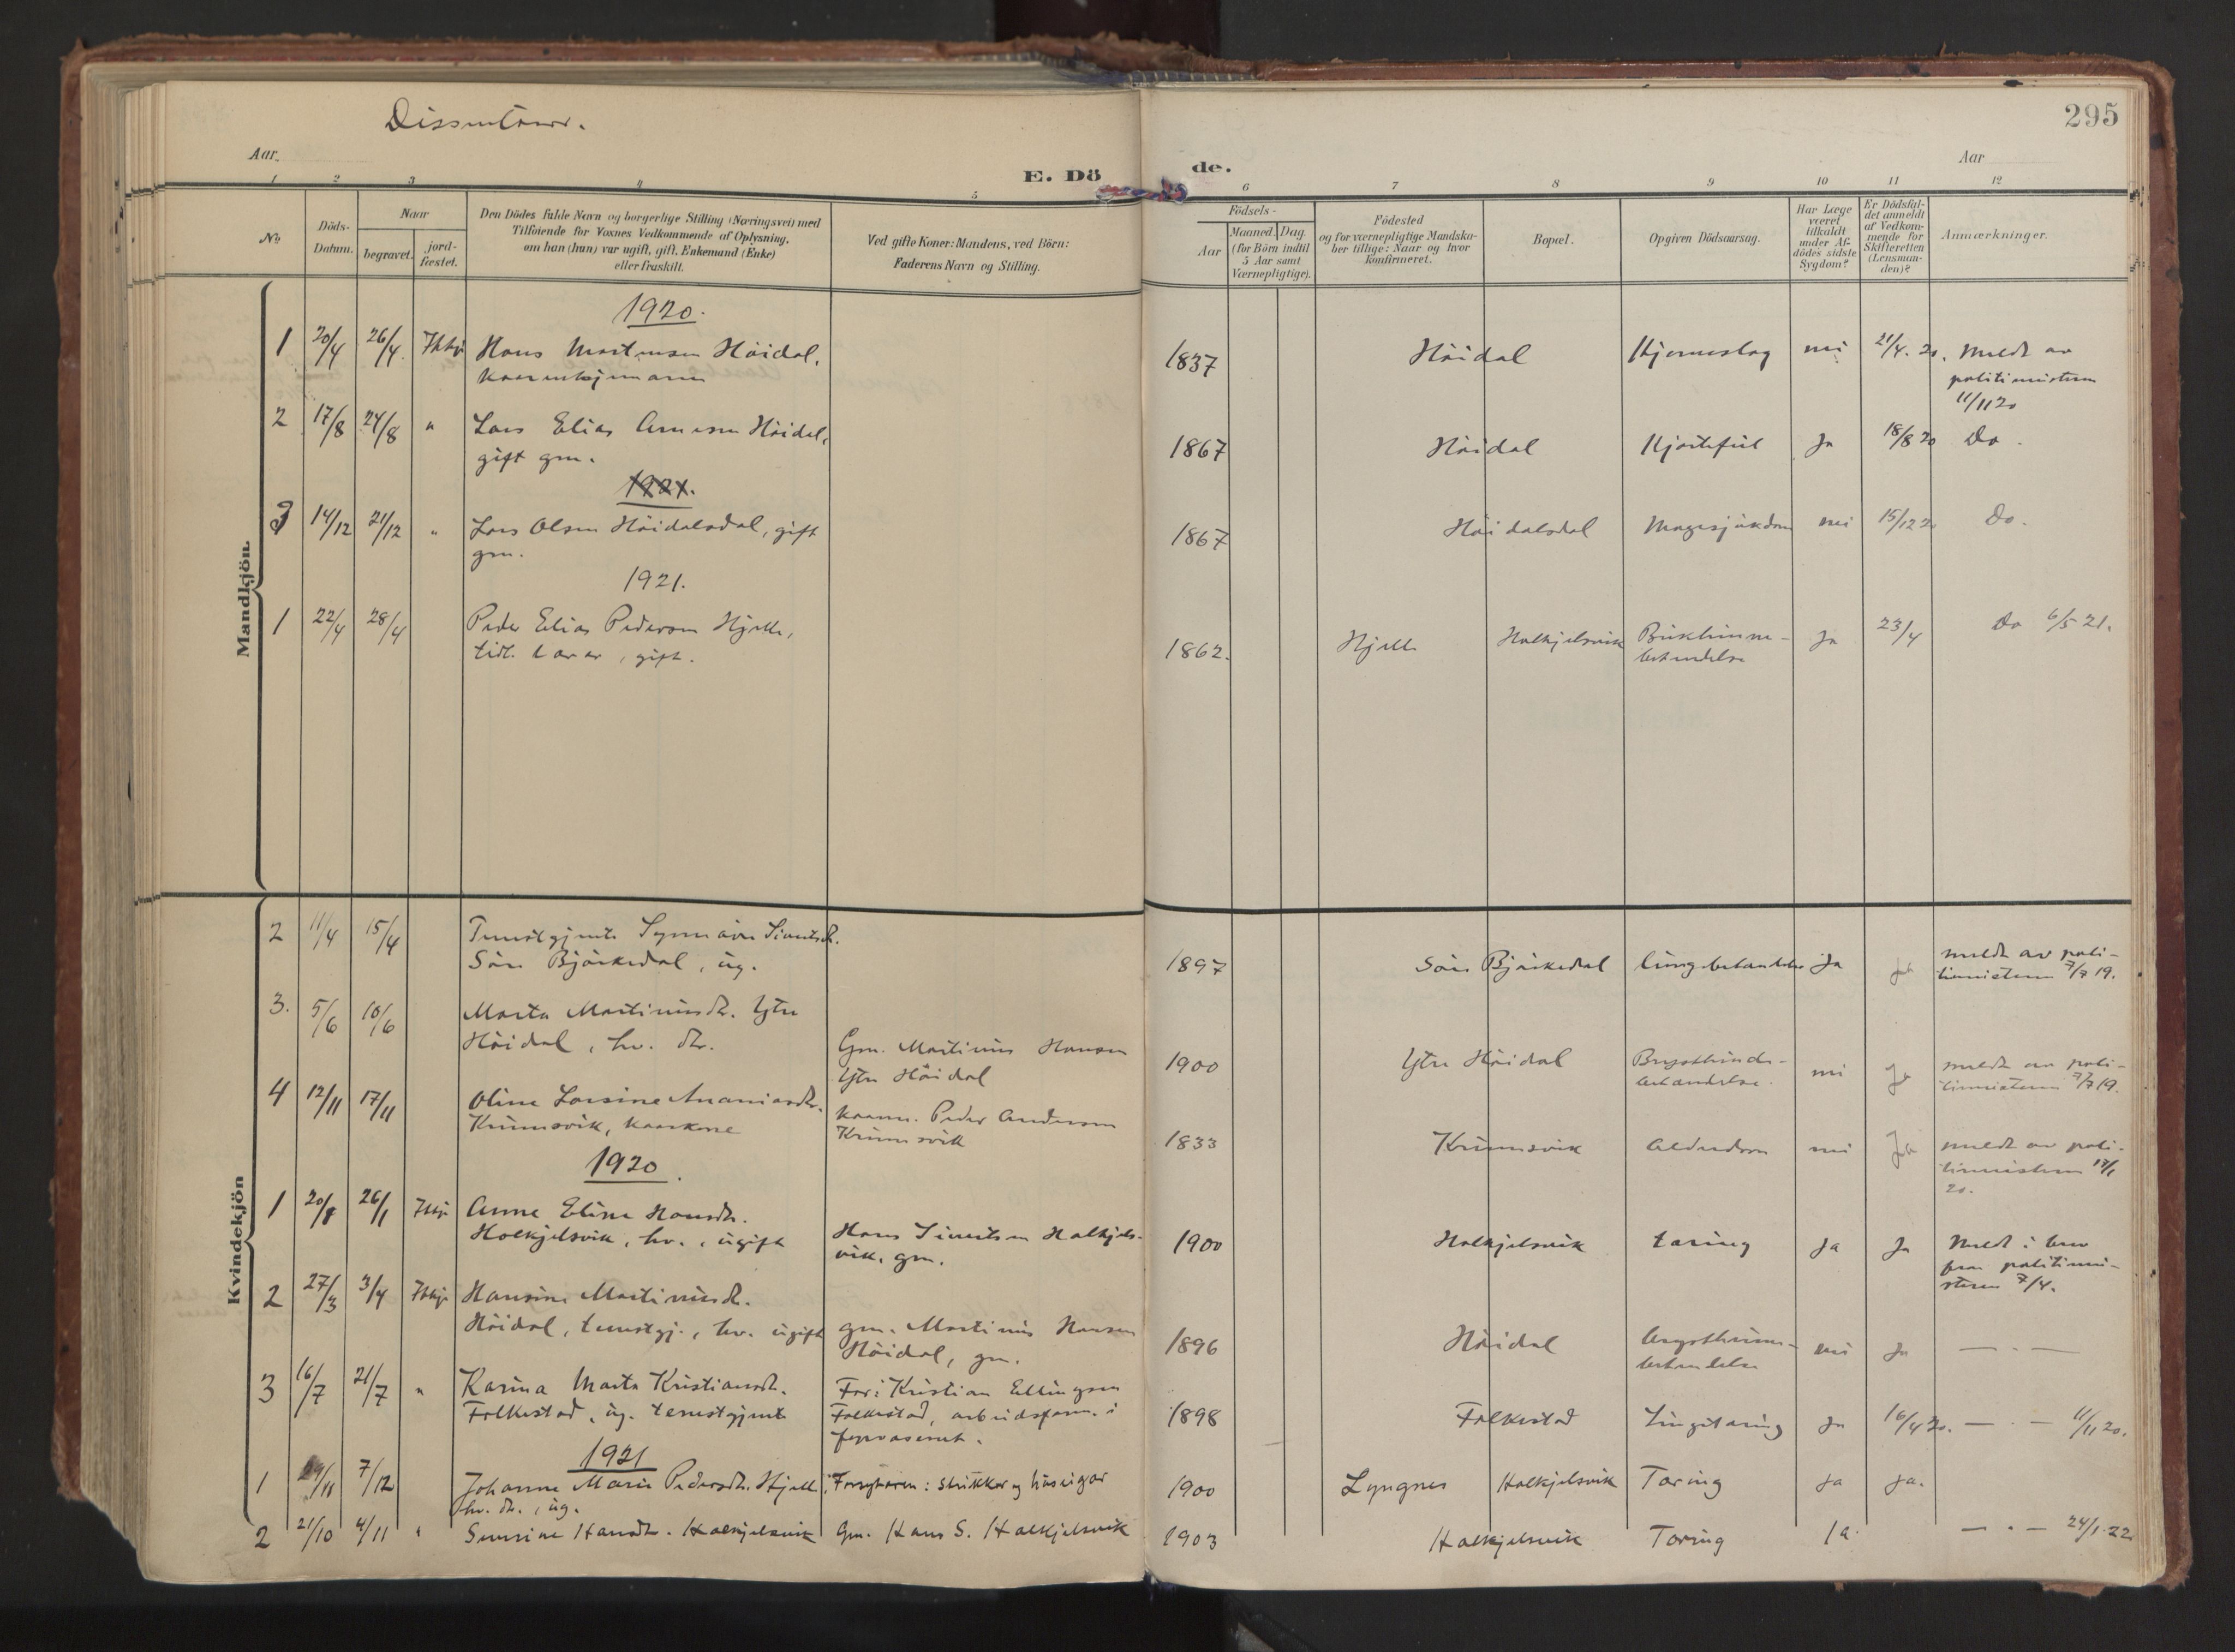 Dissentere.
295
Aar.
Aar
E. Dö
de.
1 2 3 4 5 6 7 8 9 10 11 12
No.
Döds-
Datum.
Naar
begravet.
jord-
fæstet.
Den Dödes fulde Navn og borgerlige Stilling (Næringsvei) med
Tilföiende for Voxnes Vedkommende af Oplysning,
om han (hun) var ugift, gift, Enkemand (Enke)
eller fraskilt.
Ved gifte Koner: Mandens, ved Börn:
Faderens Navn og Stilling.
Födsels-
Aar
Maaned. Dag.
(for Börn indtil
5 Aar samt
Værnepligtige).
Födested
og for værnepligtige Mandska-
ber tillige: Naar og hvor
konfirmeret.
Bopæl.
Opgiven Dödsaarsag.
Har Læge
været
tilkaldt
under Af-
dödes sidste
Sygdom?
Er Dödsfal-
det anmeldt
af Vedkom-
mende for
Skifteretten
(Lensman-
den)?
Anmærkninger.
Mandkjön.
1920.
1 20/4 26/4 Hans Martinsen Höidal, 1837 Höidal nei 21/4. 20. Meldt av
politimesteren
11/11 20
2 17/8 24/8 " Lars Elias Höidal, 1867 Höidal Hjertefeil Ja 18/8 20 Do.
gift gm.
1921.
3 14/12 21/12 " Lars Olsen Höidalsdal, gift 1867 Höidalsdal Magesjukdom nei 15/12 20 Do.
gm.
1921.
1 22/4 28/4 Peder Elias Pedersen Hjelle, 1862. Hjelle Halkjelsvik Bukhinne- Ja 23/4 Do 6/5 21.
tidl. lærer, gift. betendelse
Kvindekjön
2 11/4 15/4 Tenestgjente Synnöve Sivertsdt.
Söre Bjørkedal, ug. 1897 Söre Bjørkedal lungebetendelse Ja Ja meldt av poli-
timesteren 7/7 19.
3. 5/6 10/6 Marta Martinusdt. Ytre
Höidal, hv. dtr. Gm. Martinus Hansen
Ytre Höidal 1900 Ytre Höidal Brysthinde-
betendelse. nei Ja meldt av poli-
timesteren 7/7 19.
4 12/11 17/11 Oline Larsine Ananiasdtr.
Krumsvik, kaarkone kaarm. Peder Andersen
Krumsvik 1833 Krumsvik Alderdom nei Ja meldt av poli-
timesteren 17/1
20.
1920.
1 26/1 Anne Eline Hansdt.
Halkjelsvik, hv., ugift Hans Sivertsen Halkjels-
vik, gm. 1900 Halkjelsvik tæring Ja Ja Meldt i brev
fra politime-
steren 7/4.
2 27/3 3/4 Hansine Martinusdt.
Höidal, tenestgj., hv. ugift gm. Martinus Hansen
Höidal, gm. 1896 Höidal brysthinne-
betendelse nei Ja — . —
3 16/7 21/7 " Karina Marta Kristiansdt.
Folkestad, ug. tenestgjente Far: Kristian Ellingsen
Folkestad, arbeidsform. i
fyrvæsenet. 1898 Folkestad Lungetæring Ja 16/4 20. — . — 11/11 20.
1921
1 29/11 7/12 Johanne Marie Pedersdt. Hjelle Forsytaren: Snikkar og huseigar 1900 Lyngnes Halkjelsvik Tæring Ja Ja.
hv. dtr., ug.
2 21/10 4/11 " Hansdt. Halkjelsvik Gm. Hans S. Halkjelsvik 1903 Halkjelsvik Tæring Ja — . — 24/1. 22